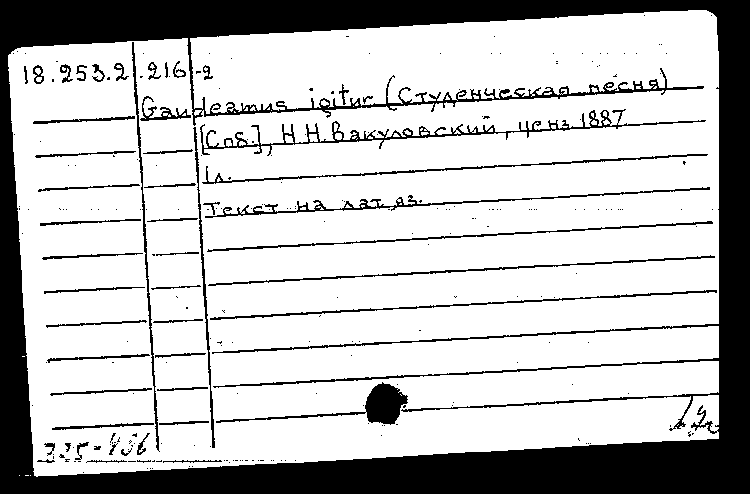 18.253.2.216-2
Gaudeamus igitur (Студенческая песня)
[Спб.], Н.Н. Вакуловский, ценз 1887
1 л.
Текст на лат яз.
335-456